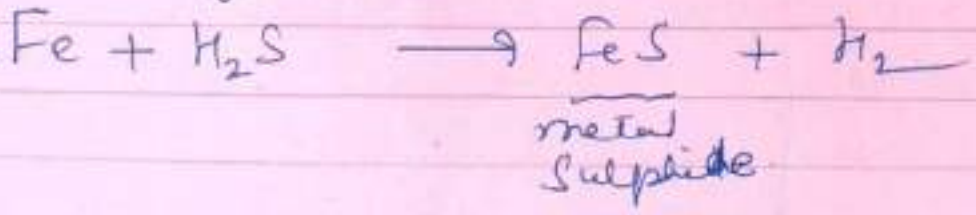 Fe + H₂S ⟶ FeS + H₂
metal
Sulphide